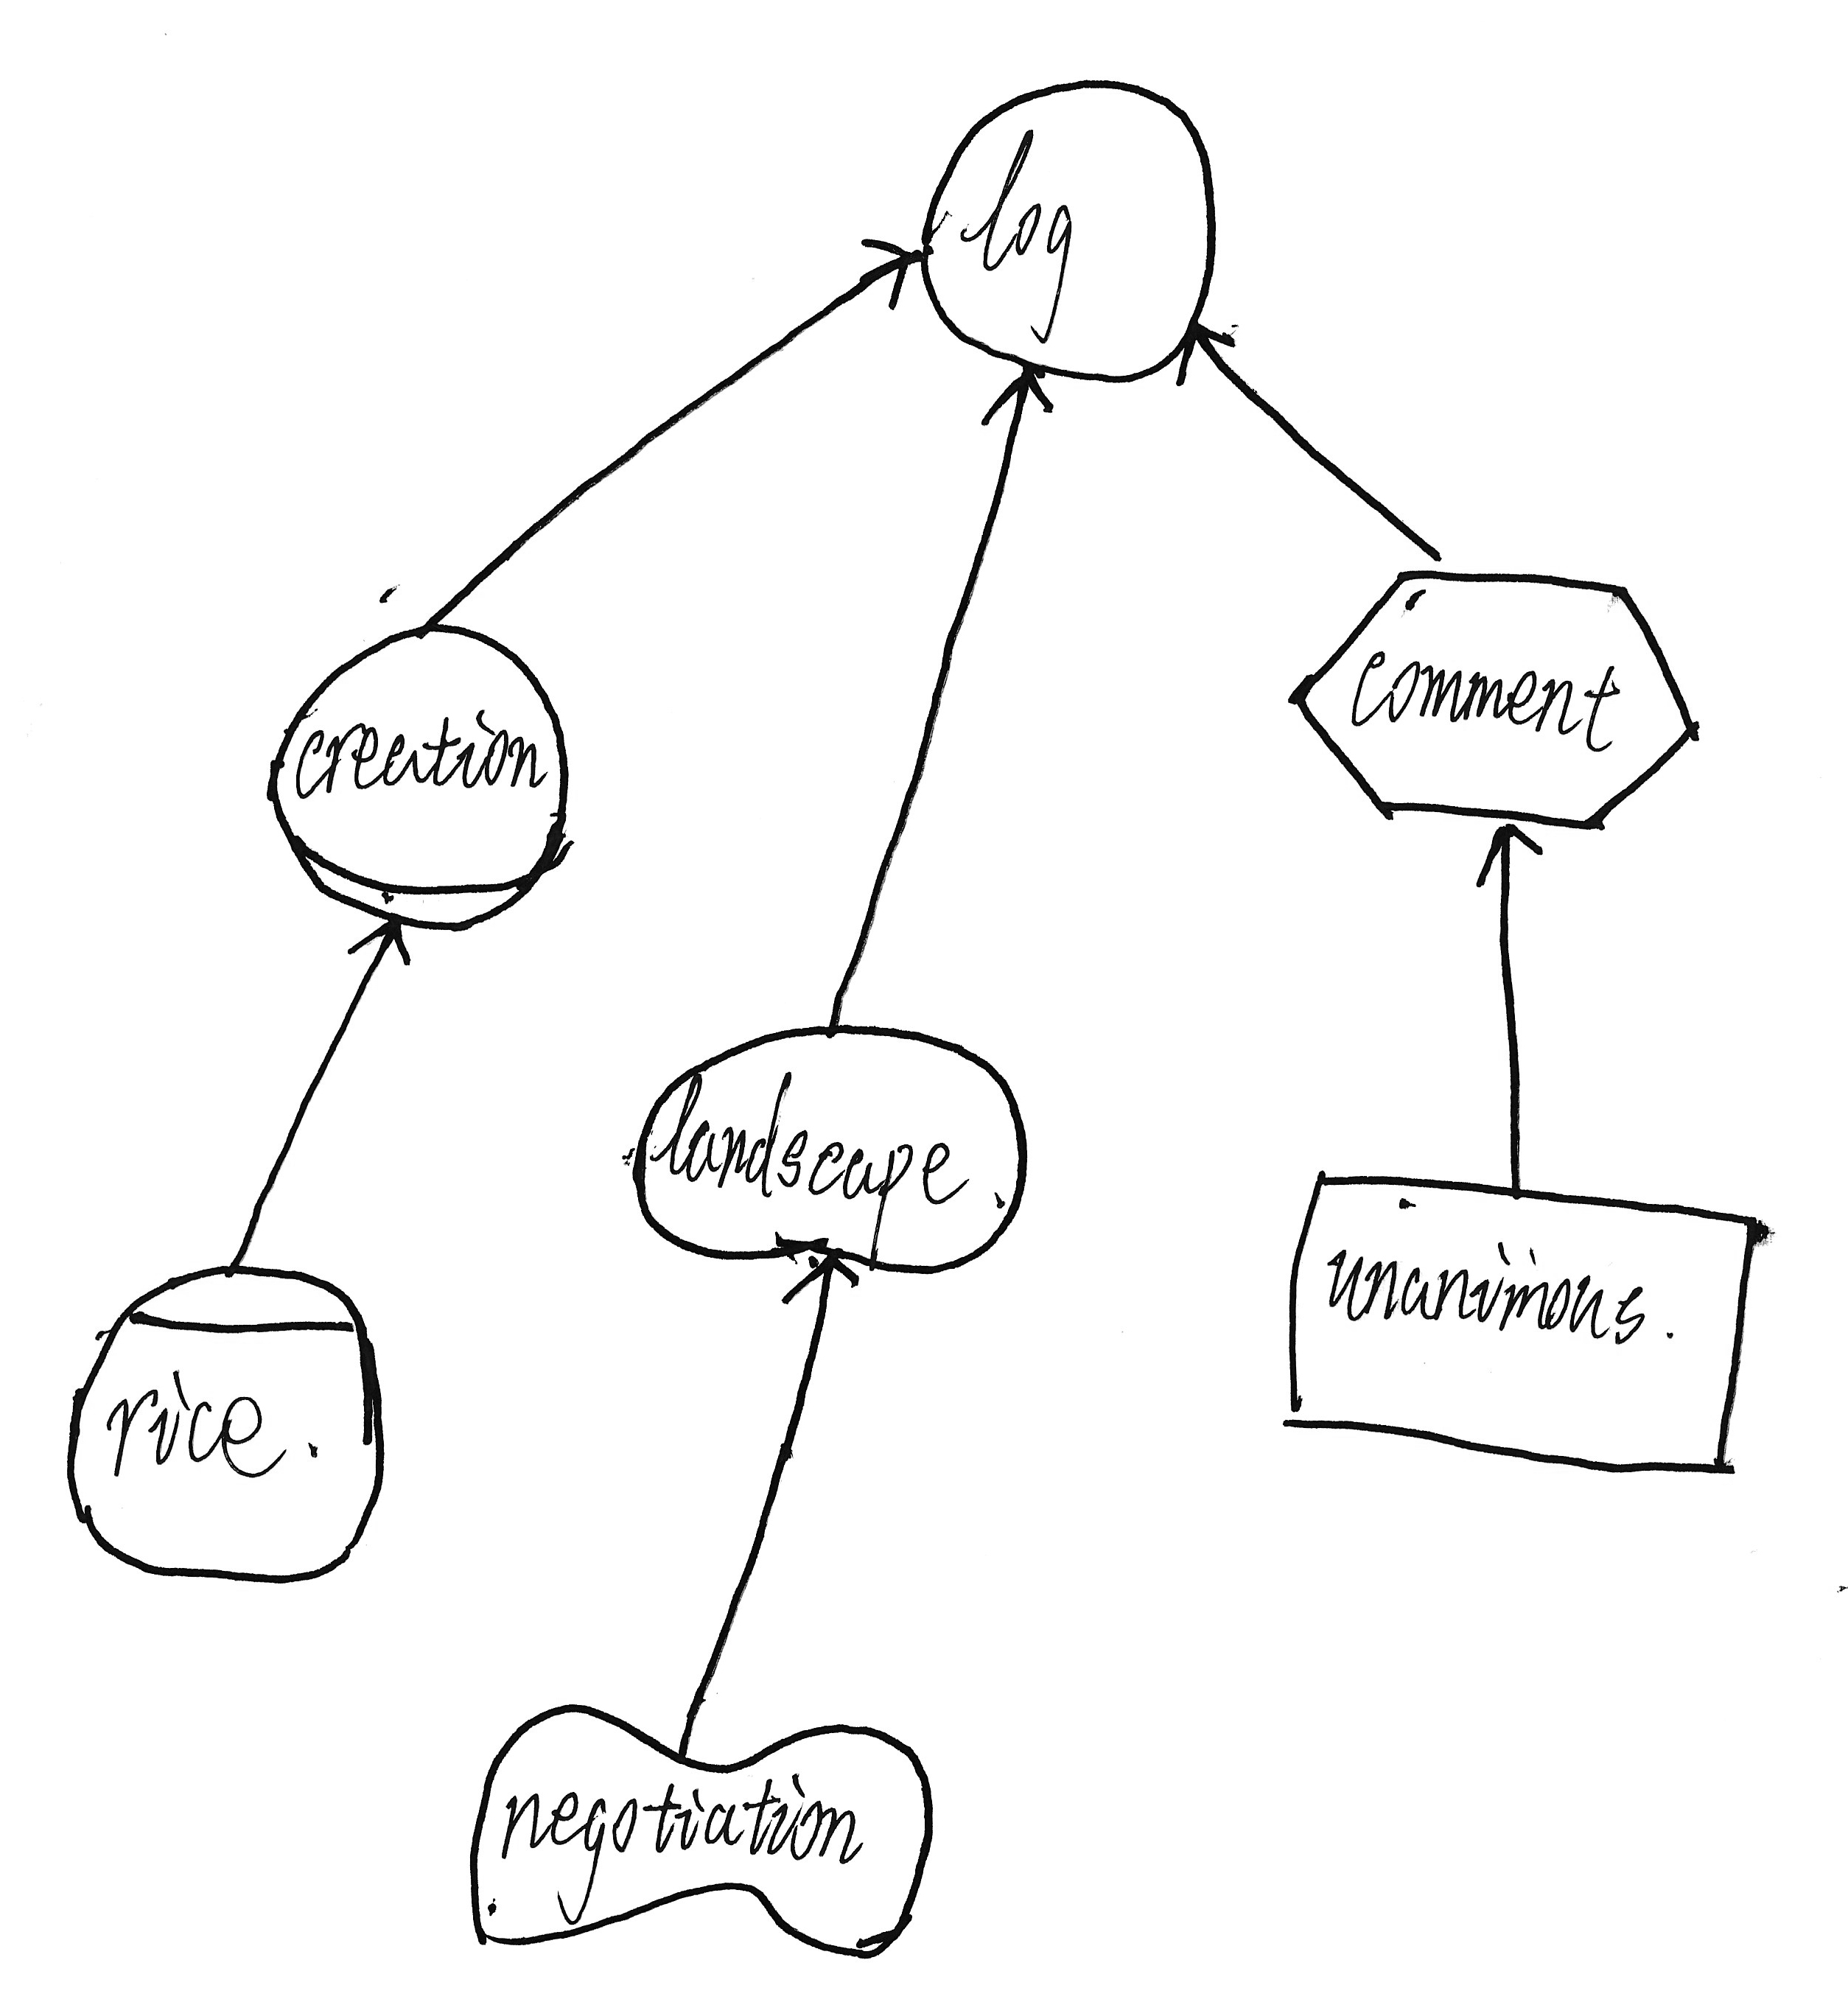 log
creation
comment
landscape
unanimous.
rice.
negotiation